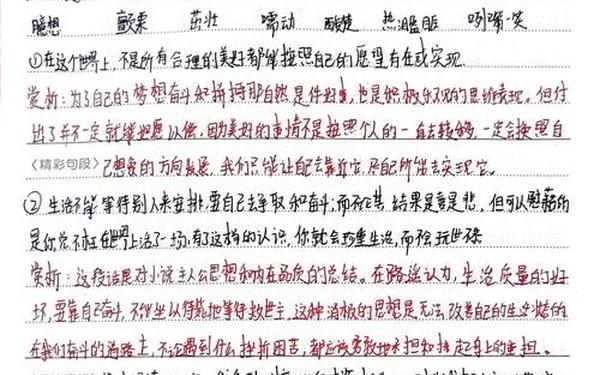 臆想 颤栗 茁壮 嚅动 酸楚 热泪盈眶 咧嘴一笑
①在这个世界上,不是所有合理的美好都能按照自己的愿望存在或实现
赏析:为了自己的梦想奋斗和拼搏那自然是件好事,也是积极乐观的思维表现。但付
出了并不一定就能如愿以偿,因为美好的事情不是按照个人的一自去转移,一定会按照自
〈精彩句段〉己想要的方向发展,我们只能让自己去靠近它,尽自己所能去实现它。
②生活不能等待别人来安排,要自己去争取和奋斗;而不论其结果是喜是悲,但可以慰藉的
是你总不枉在世界上活了一场,有了这样的认识,你就会珍重生活,而不会玩世不恭
赏析:这段话是对小说主人公思想和内在品质的总结。在路遥认为,生活质量的好
坏,要靠自己奋斗,不能坐以待毙地等待救世主,这种消极的思想是无法改善自己的生活的
在我们奋斗的道路上,不论遇到什么挫折困苦,都应该勇敢地承担和挑起身上的重担。